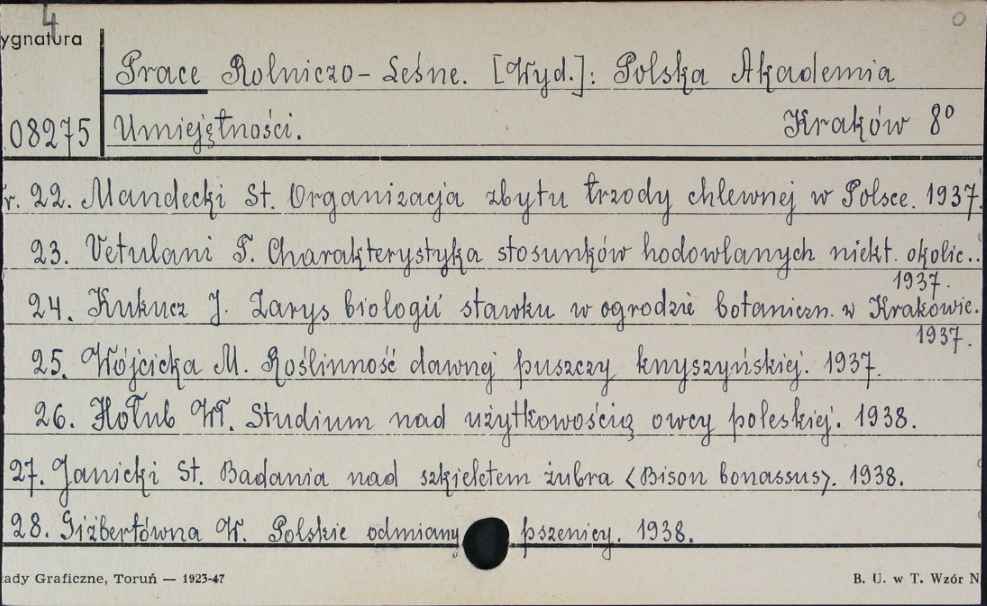 4
ygnatura
Prace Rolniczo-Leśne. [Wyd.]: Polska Akademia
08275 Umiejętności. Kraków 8°
r. 22. Mandecki St. Organizacja zbytu trzody chlewnej w Polsce. 1937.
23. Vetulani T. Charakterystyka stosunków hodowlanych niekt. okolic..
1937.
24. Kukucz J. Zarys biologii stawku w ogrodzie botaniczn. w Krakowie.
1937.
25. Wójcicka M. Roślinność dawnej puszczy knyszyńskiej. 1937.
26. Hołub Wł. Studium nad użytkowością owcy poleskiej. 1938.
27. Janicki St. Badania nad szkieletem żubra <Bison bonassus>. 1938.
28. Giżbertówna W. Polskie odmiany pszenicy. 1938.
ady Graficzne, Toruń — 1923-47 B. U. w T. Wzór N